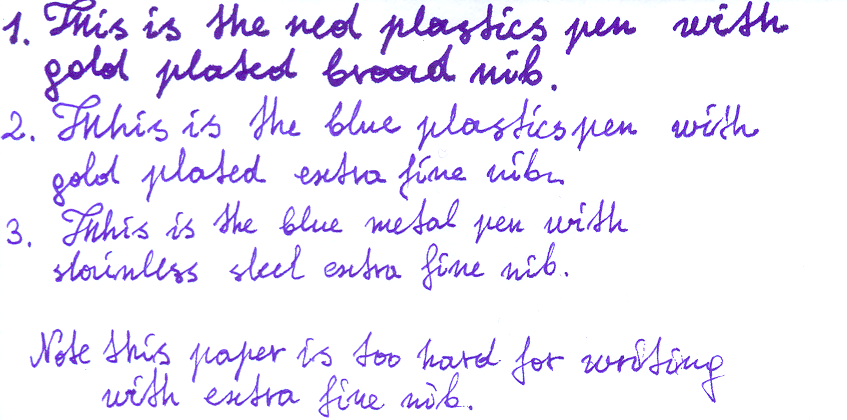 1. This is the red plastics pen with
gold plated broad nib.
2. Thhis is the blue plastics pen with
gold plated extra fine nib.
3. Thhis is the blue metal pen with
stainless steel extra fine nib.
Note this paper is too hard for writing
with extra fine nib.